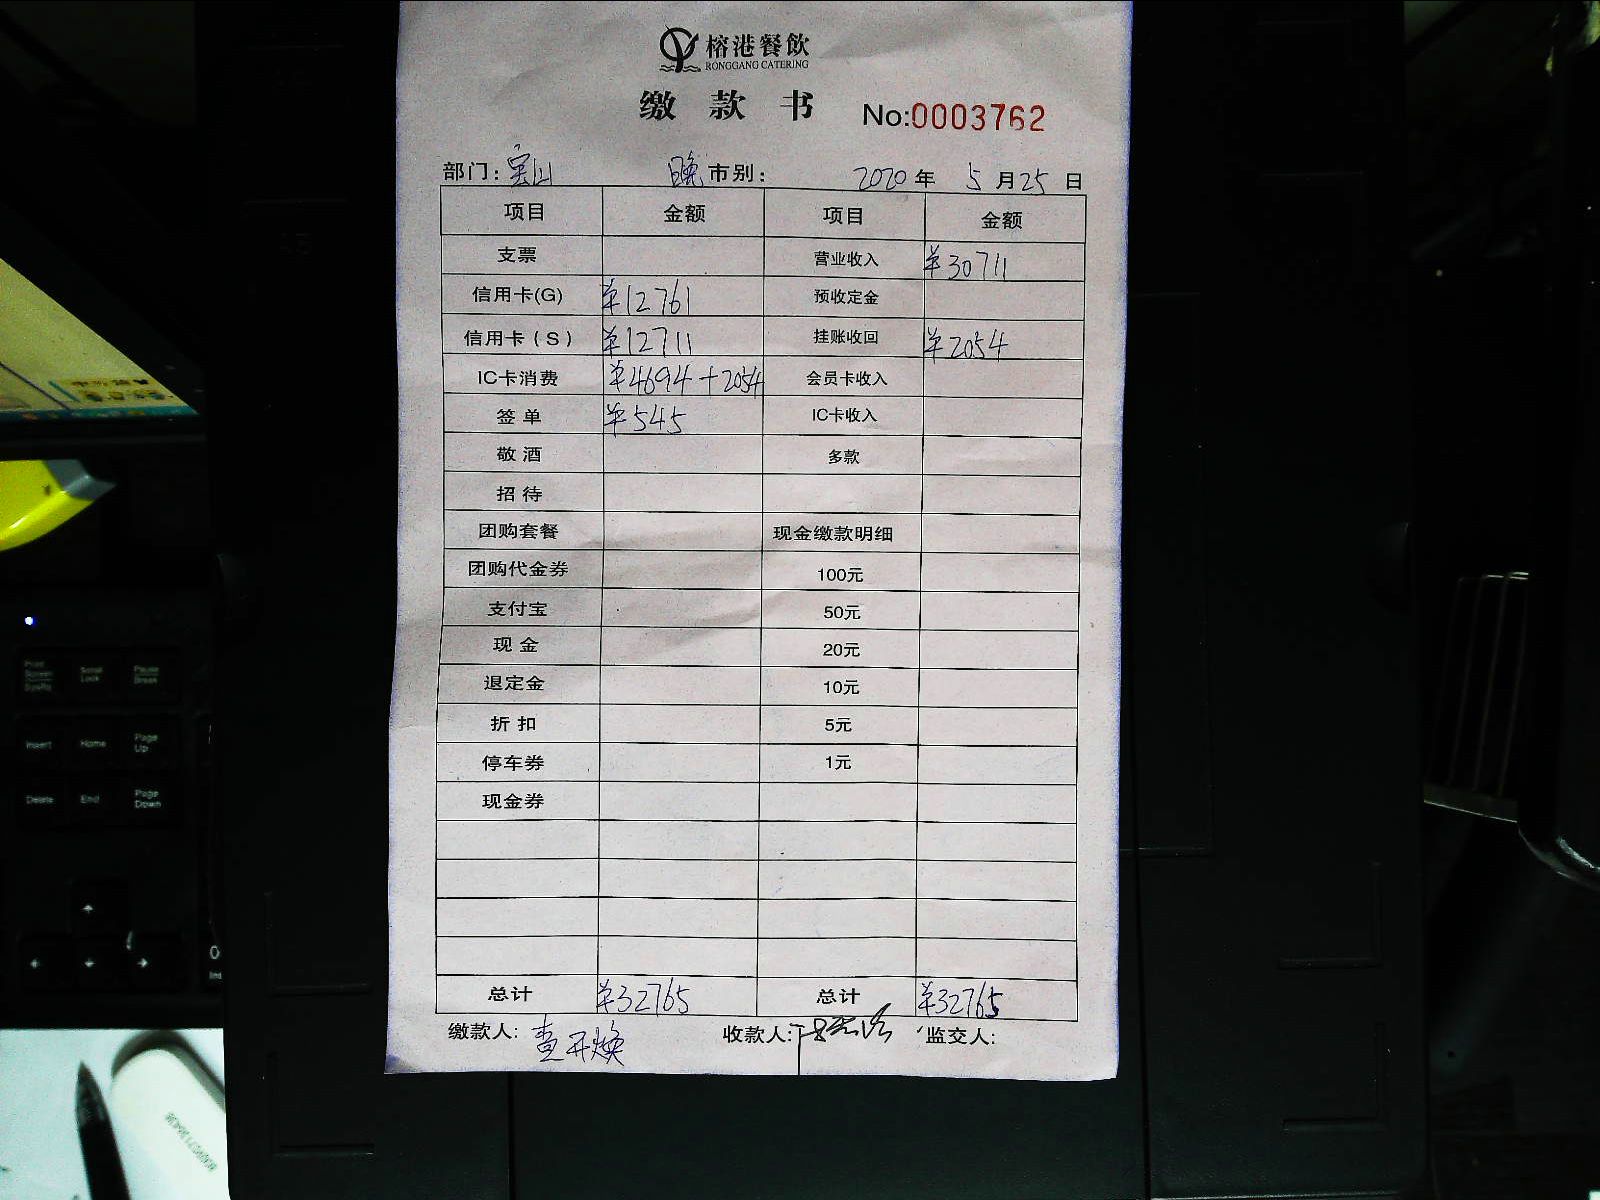 榕港餐飲
RONGGANG CATERING
缴 款 书 No:0003762
部门: 宝山 晚 市别: 2020 年 5 月 25 日
项目 金额 项目 金额
支票 营业收入 ¥30711
信用卡(G) ¥12761 预收定金
信用卡(S) ¥12711 挂账收回 ¥2054
IC卡消费 ¥4694+2054 会员卡收入
签单 ¥545 IC卡收入
敬酒 多款
招待
团购套餐 现金缴款明细
团购代金券 100元
支付宝 50元
现金 20元
退定金 10元
折扣 5元
停车券 1元
现金券
总计 ¥32765 总计 ¥32765
缴款人: 查开焕 收款人: 监交人:
Print Screen SysRq Scroll Lock Pause Break
Insert Home Page Up
Delete End Page Down
0
Ins